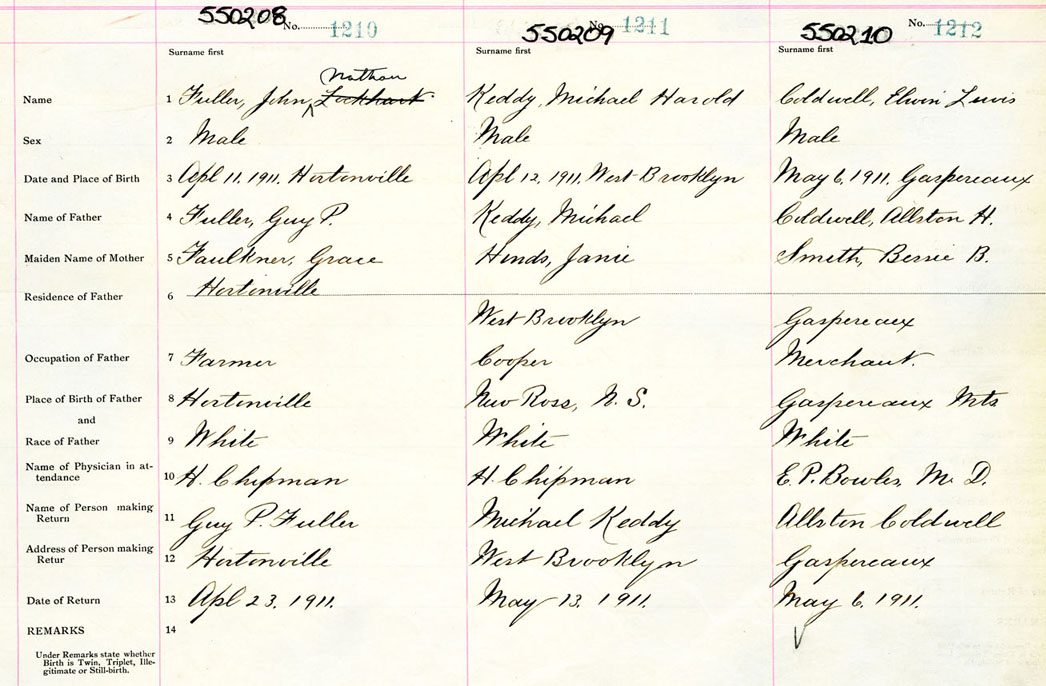 550208 No. 1210 550209 No. 1211 550210 No. 1212
Surname first Surname first Surname first
Nathan
Name 1 Fuller, John, Lockhart Keddy, Michael Harold Coldwell, Elwin Lewis
Sex 2 Male Male Male
Date and Place of Birth 3 Apl 11. 1911. Hortonville Apl 12. 1911. West Brooklyn May 6, 1911. Gaspereaux
Name of Father 4 Fuller, Guy P. Keddy, Michael Coldwell, Allston H.
Maiden Name of Mother 5 Faulkner, Grace Hinds, Janie Smith, Bessie B.
Residence of Father 6 Hortonville
West Brooklyn Gaspereaux
Occupation of Father 7 Farmer Cooper Merchant.
Place of Birth of Father 8 Hortonville New Ross, N. S. Gaspereaux Mts
and
Race of Father 9 White White White
Name of Physician in at-
tendance 10 H. Chipman H. Chipman E. P. Bowles, M. D.
Name of Person making
Return 11 Guy P. Fuller Michael Keddy Allston Coldwell
Address of Person making
Retur 12 Hortonville West Brooklyn Gaspereaux
Date of Return 13 Apl 23. 1911. May 13. 1911. May 6. 1911.
REMARKS 14
Under Remarks state whether
Birth is Twin, Triplet, Ille-
gitimate or Still-birth.